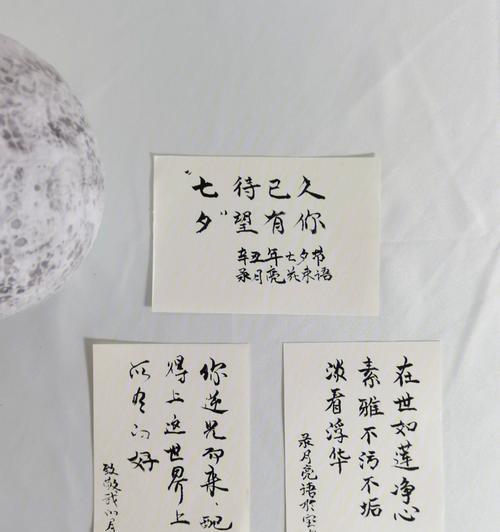 “七 待已久
夕” 望有你
辛丑年七夕节
录月亮花束语
你逆光而来，配
得上这世界上
所有的好
致敬我的月
在世如莲净心
素雅不污不垢
淡看浮华
录月亮语于